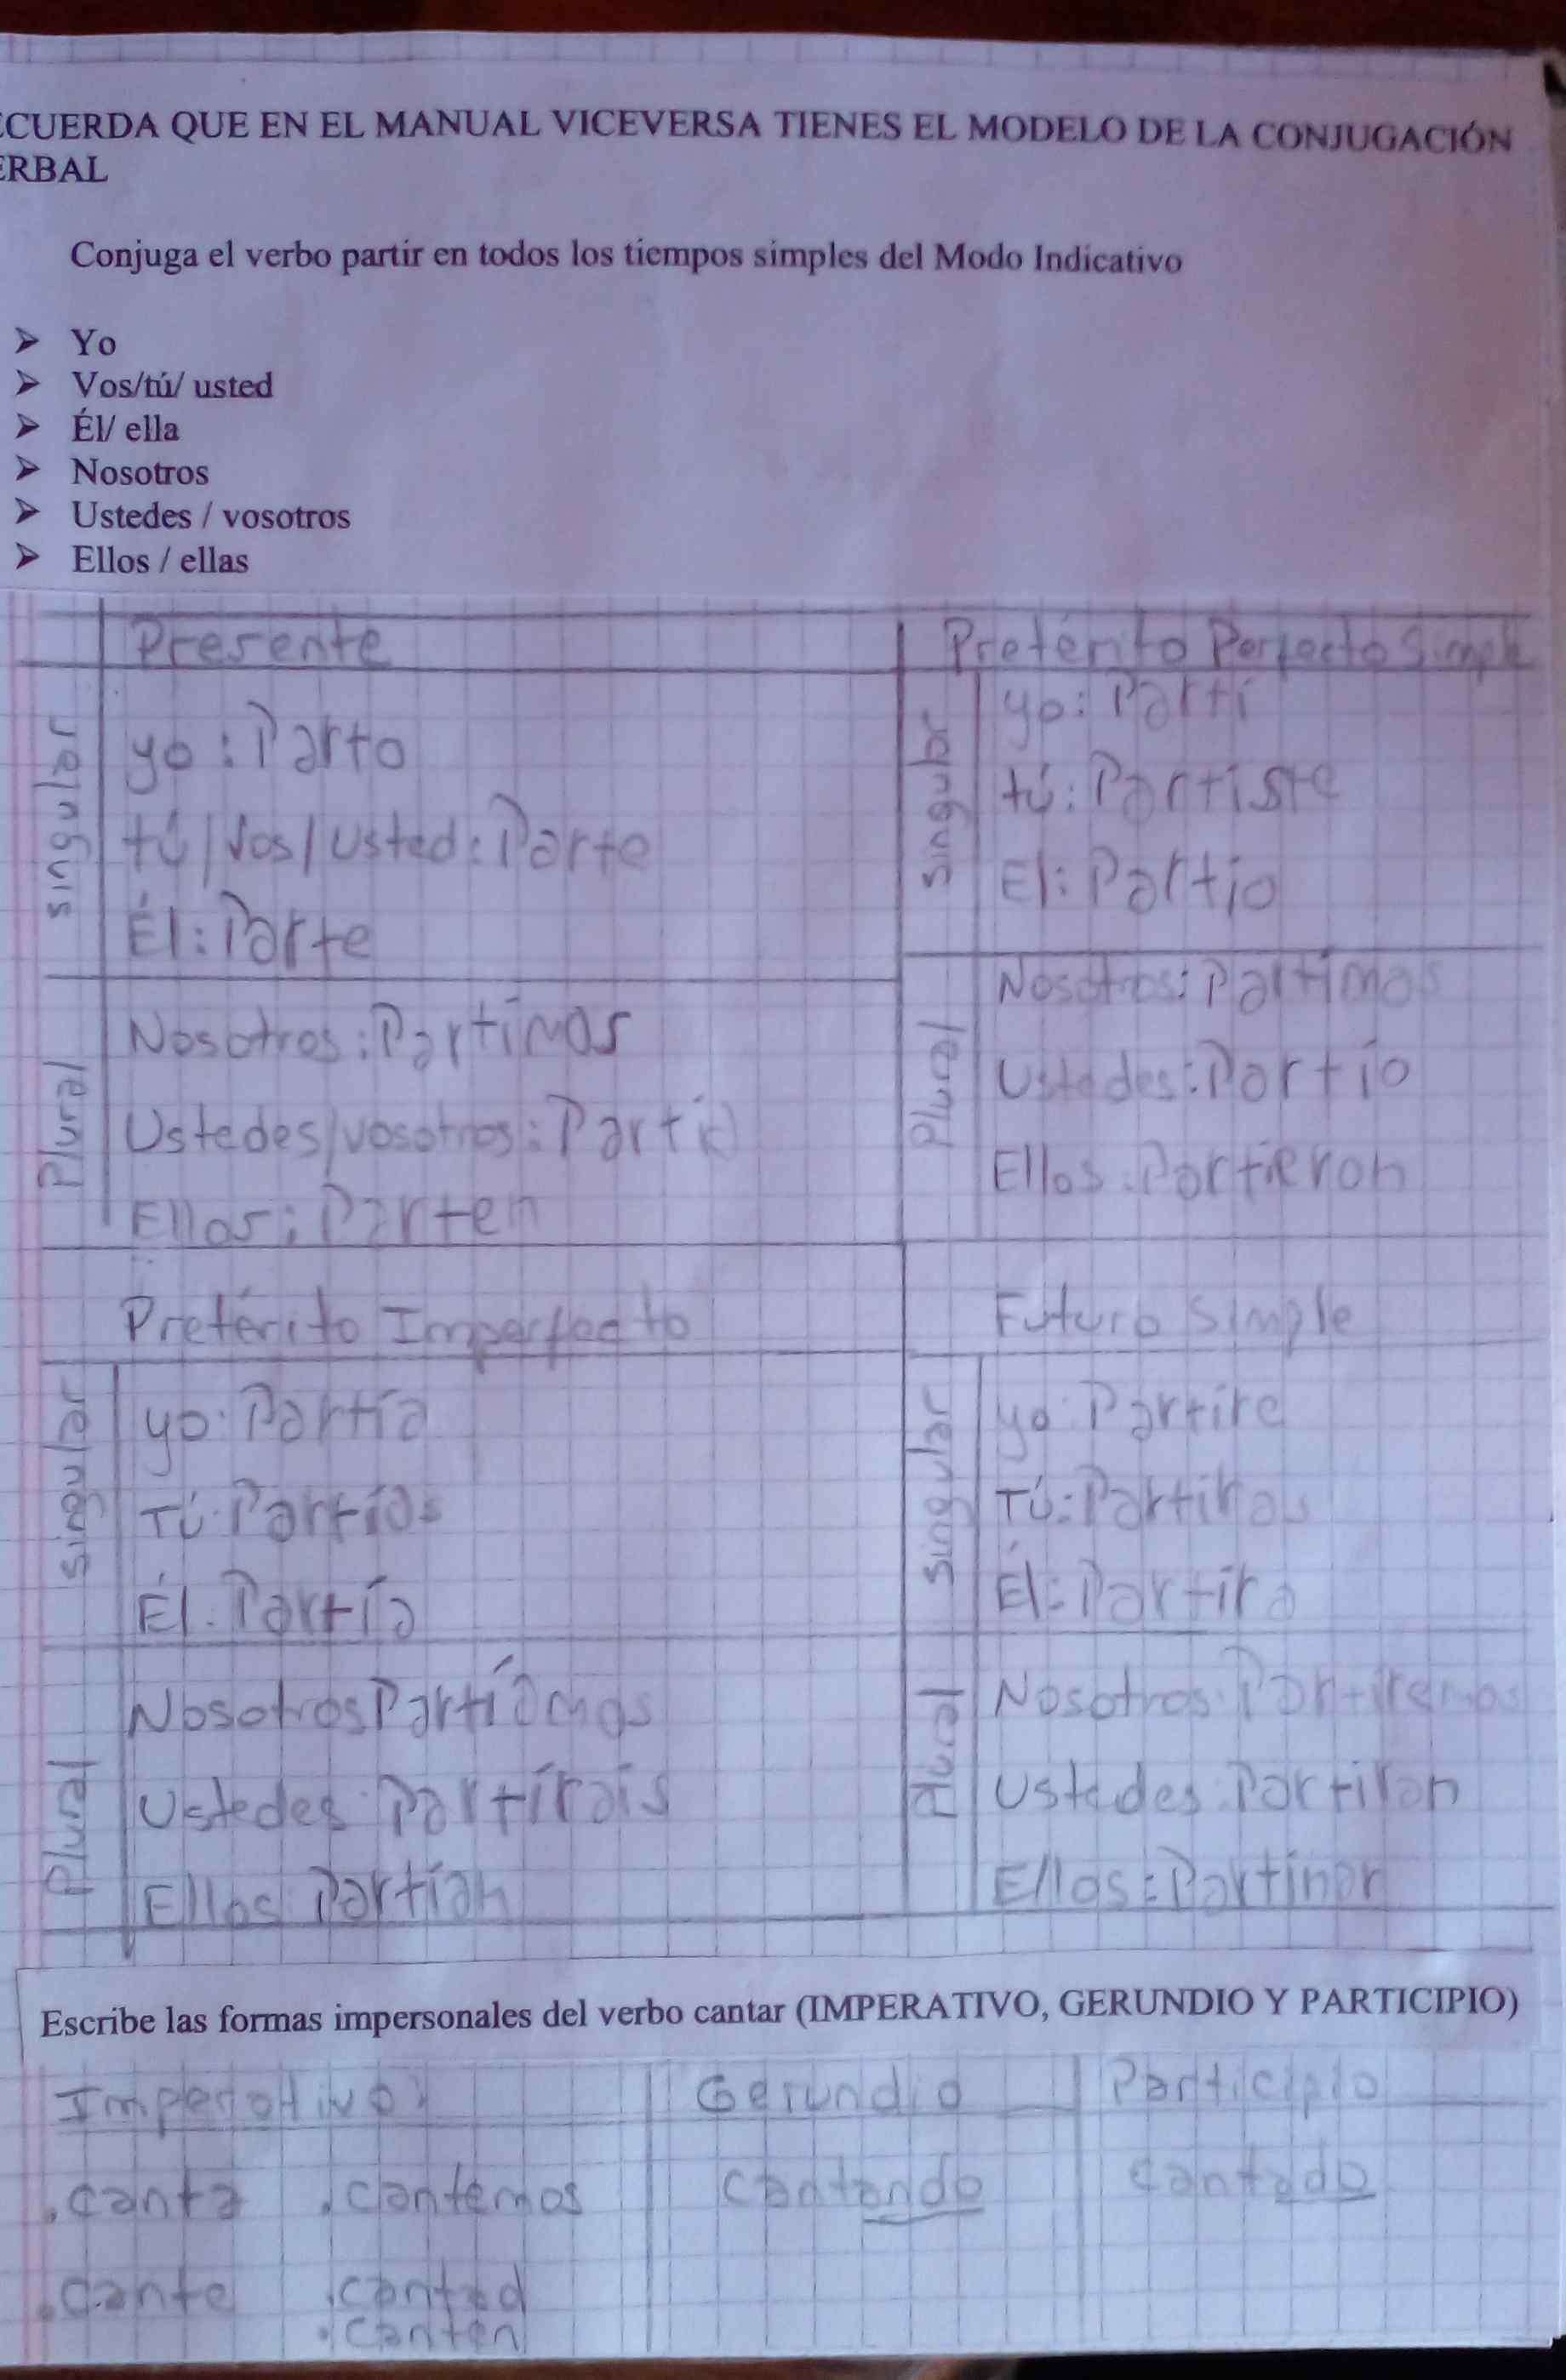 ECUERDA QUE EN EL MANUAL VICEVERSA TIENES EL MODELO DE LA CONJUGACIÓN
ERBAL
Conjuga el verbo partir en todos los tiempos simples del Modo Indicativo
➤ Yo
➤ Vos/tú/ usted
➤ Él/ ella
➤ Nosotros
➤ Ustedes / vosotros
➤ Ellos / ellas
Presente
singular
yo: Parto
tú/Vos/Usted: Parte
Él: Parte
Plural
Nosotros: Partimos
Ustedes/vosotros:
Ellos: Parten
Pretérito Perfecto Simple
singular
yo: Partí
tú: Partiste
El: Partio
Plural
Nosotros: Partimos
Ustedes: Partio
Ellos: Partieron
Pretérito Imperfecto
singular
yo: Partía
Tú: Partías
Él: Partía
Plural
Nosotros Partíamos
Ustedes: Partírais
Ellos: Partían
Futuro Simple
singular
yo: Partire
Tú: Partiras
Él: Partira
Plural
Nosotros: Partiremos
Ustedes: Partiran
Ellos:
Escribe las formas impersonales del verbo cantar (IMPERATIVO, GERUNDIO Y PARTICIPIO)
Imperativo: Gerundio Participio
.canta .cantemos cantando cantado
.cante .cantad
.canten